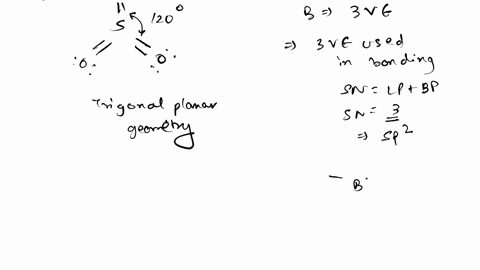 S
120°
:O:
O:
Trigonal planar
geometry
B ⇒ 3 VE
⇒ 3 VE used
in bonding
SN = LP + BP
SN = 3
⇒ SP²
B